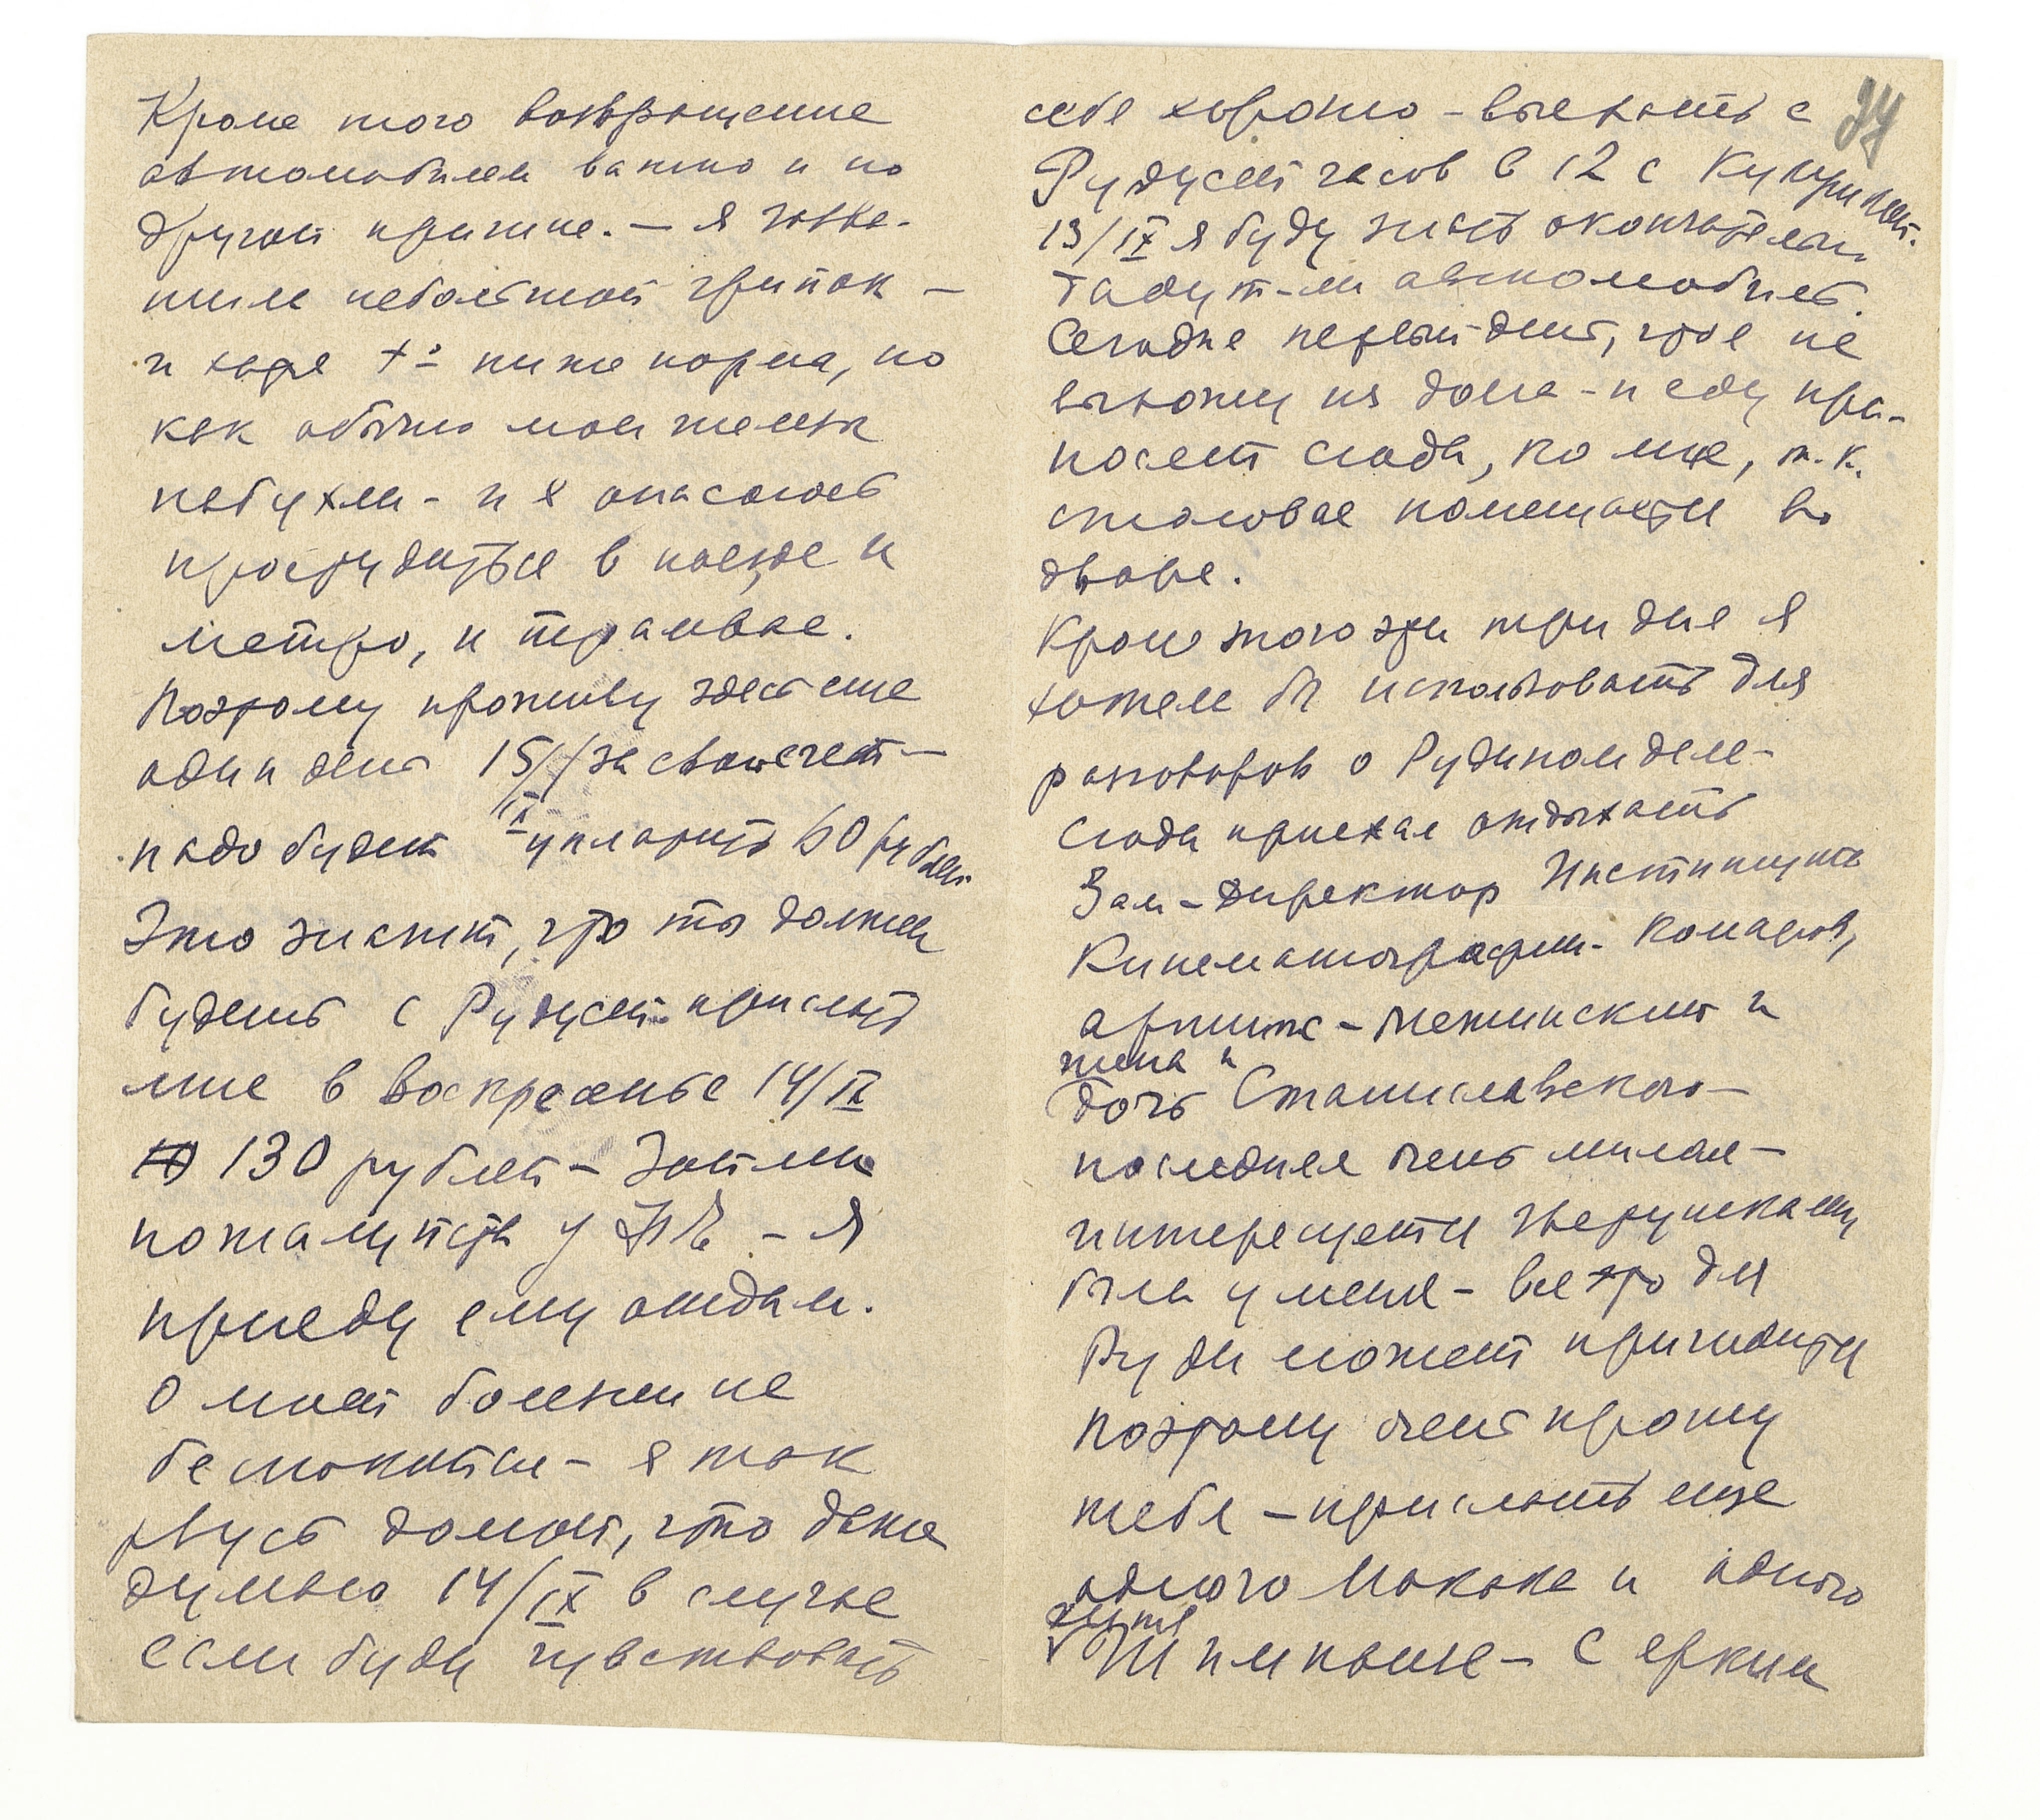 Кроме того возвращение
автомобилем важно и по
другой причине. — Я
небольшой грипок —
и хотя t° ниже нормы, но
как обычно мои железы
набухли - и я опасаюсь
простудиться в поезде и
метро, и трамвае.
Поэтому проживу здесь еще
один день 15/IX за свой счет —
надо будет уплатить 60 рублей
Это значит, что ты должна
будешь с Рудусей прислать
мне в воскресенье 14/IX
130 рублей — Займи
пожалуйста у — Я
приеду ему отдам.
О моей болезни не
беспокойся — я так
рвусь домой, что даже
думаю 14/IX в случае
если буду чувствовать
37
себя хорошо — выехать с
Рудусей часов в 12 с
13/IX я буду знать окончательно
дадут-ли автомобиль.
Сегодня первый день, что я не
выхожу из дома — и еду при-
носят сюда, ко мне, т.к.
столовая помещается во
дворе.
Кроме того эти три дня я
хотел бы использовать для
разговоров о Рудином деле —
сюда приехал отдыхать
Зам-директор Института
Кинематографии - Комаров,
артист — и
жена и
дочь Станиславского —
последняя очень милая —
интересуется зверушками
была у меня — все это для
Руди может пригодиться
Поэтому очень прошу
тебя — прислать еще
одного Макаке и одного
Шимпанзе — с ярким